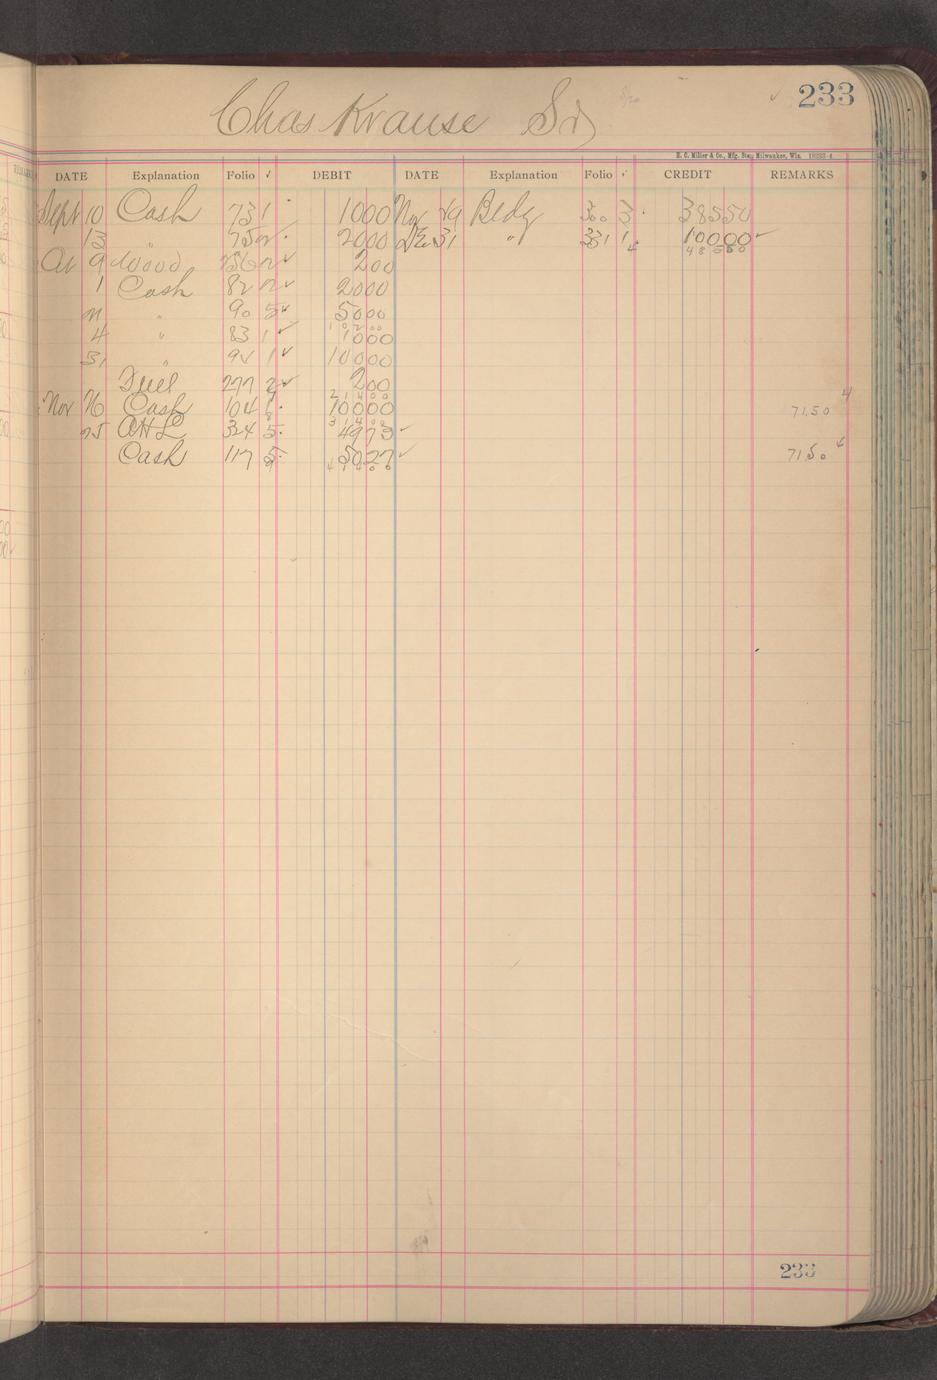 Chas Krause Sr
233
E. C. Miller & Co., Mfg. Sta., Milwaukee, Wis.
DATE Explanation Folio ✓ DEBIT DATE Explanation Folio ✓ CREDIT REMARKS
Sept 10 Cash 73 1 1000 Nov 29 Bldg 300 3 38550
13 " 75 2 2000 Dec 31 " 331 1 10000 ✓
4 48550
Oct 9 Wood 256 2 ✓ 200
1 Cash 82 2 ✓ 2000
21 " 90 5 ✓ 5000
10200
4 " 83 1 ✓ 1000
31 " 92 1 ✓ 10000
Fuel 277 2 ✓ 200
21400
Nov 16 Cash 104 1 10000 7150 4
31400
25 OHL 324 5 4973 ✓
Cash 117 5 5027 ✓ 7150 4
41400
233